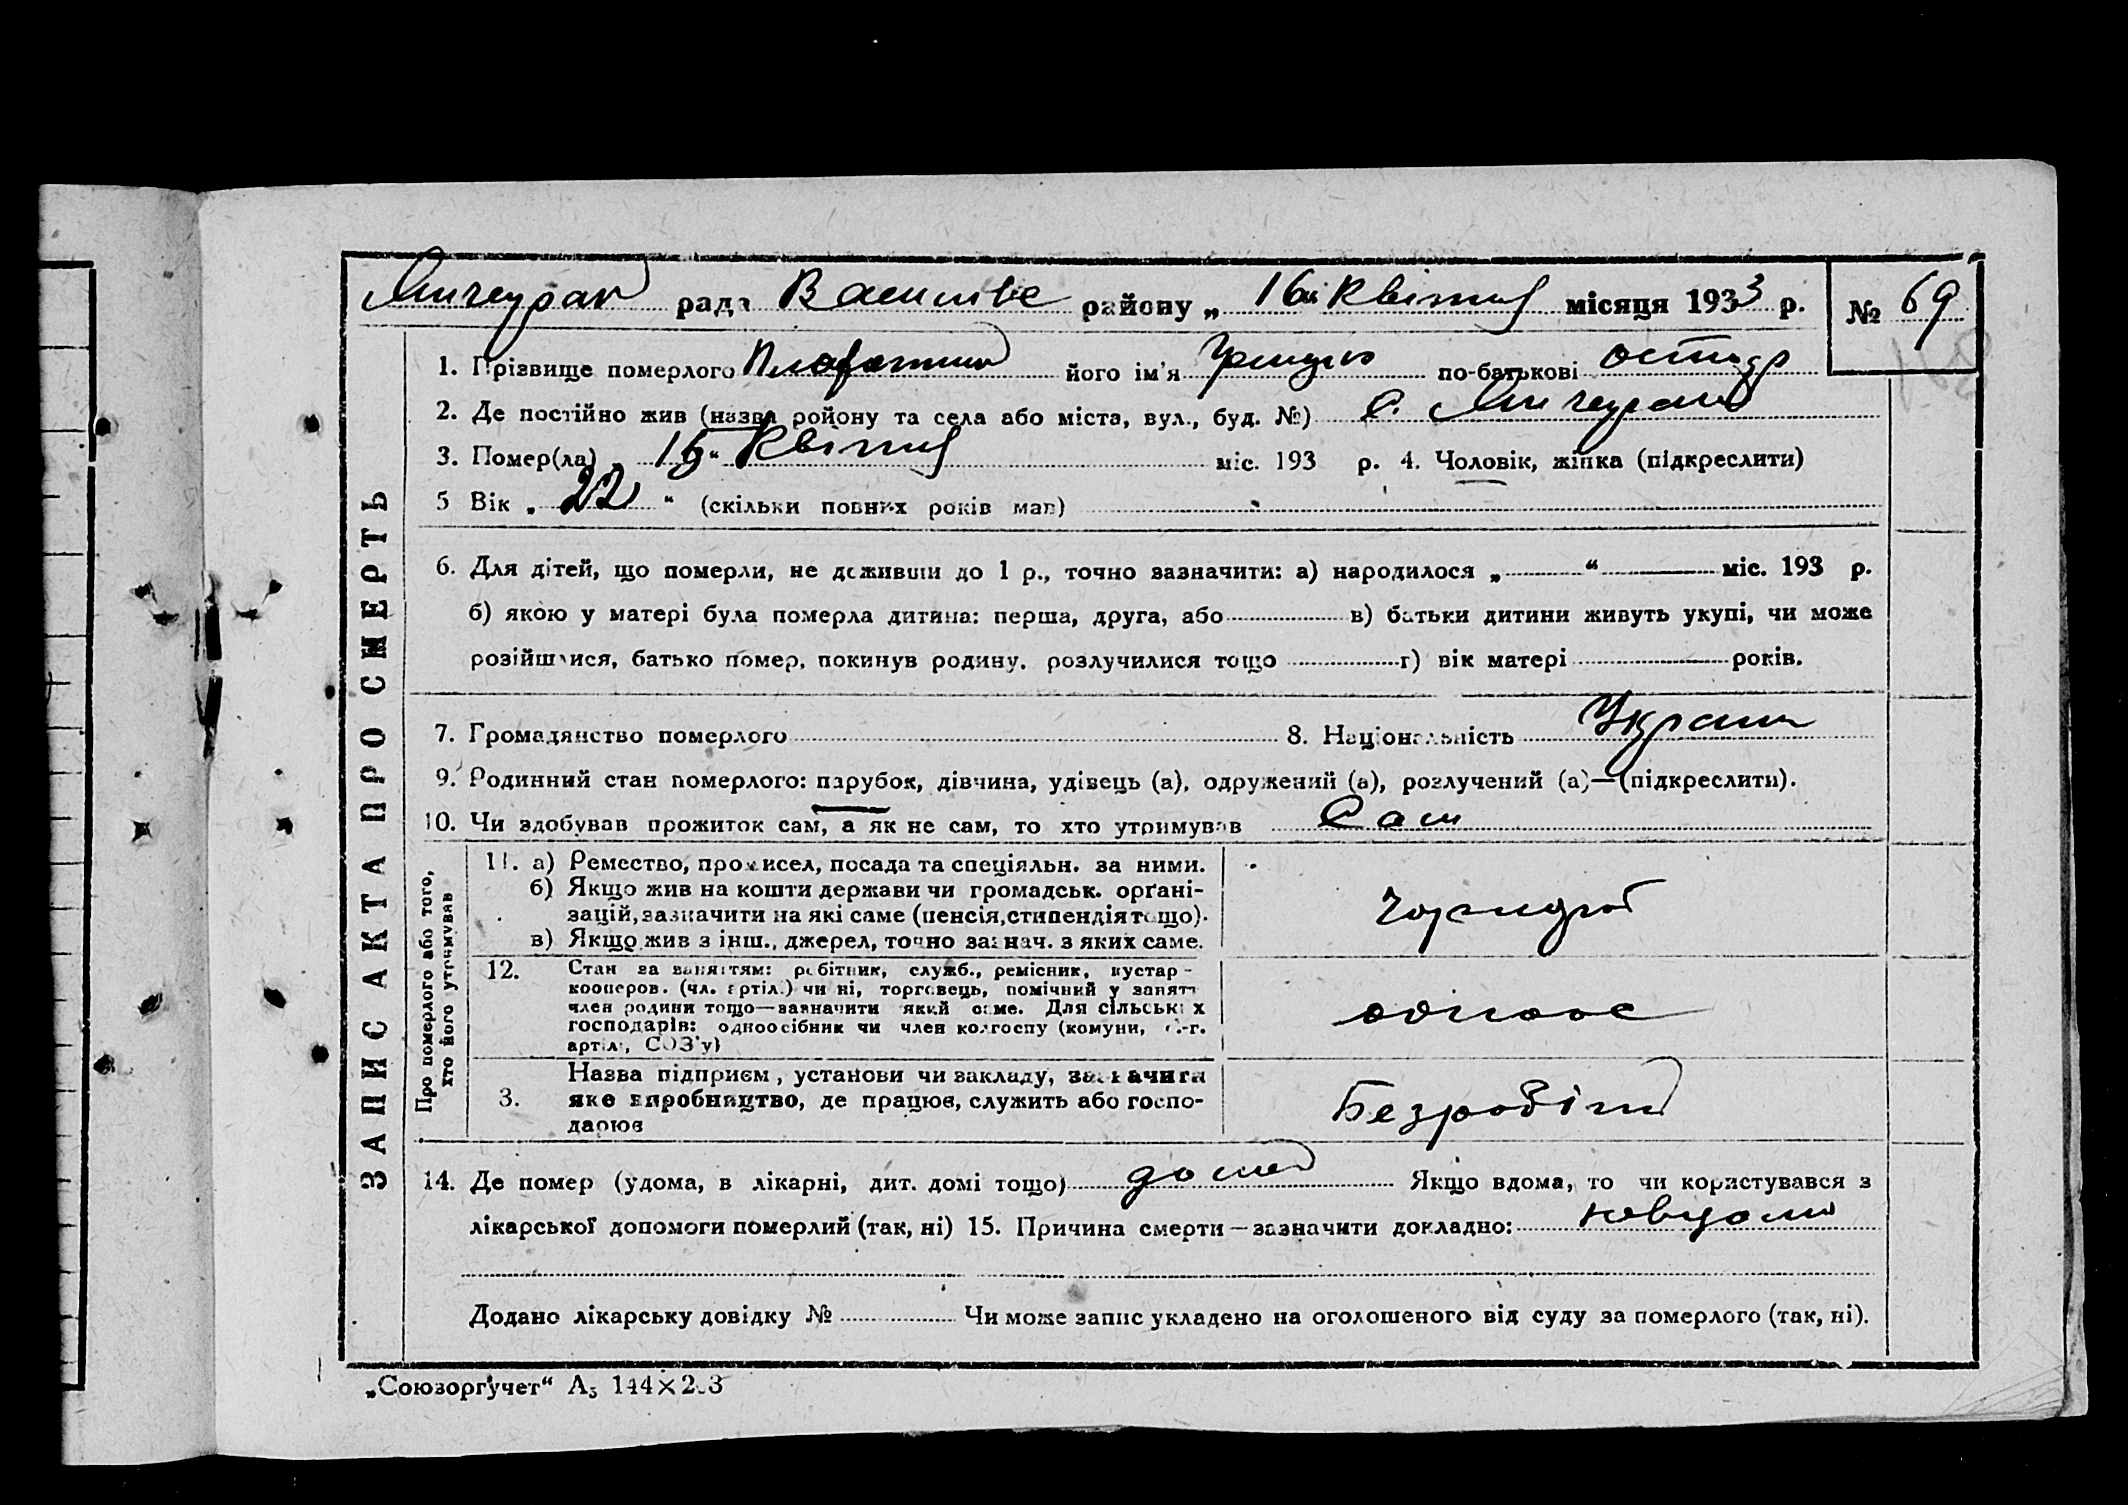 рада району „ 16 Квітня місяця 1933 р. № 69
1. Прізвище померлого його ім'я по-батькові
2. Де постійно жив (назва ройону та села або міста, вул., буд. №) С.
3. Помер(ла) Квітня міс. 193 р. 4. Чоловік, жінка (підкреслити)
5 Вік „ 22 “ (скільки повних років мав)
6. Для дітей, що померли, не доживши до 1 р., точно зазначити: а) народилося „ “ міс. 193 р.
б) якою у матері була померла дитина: перша, друга, або в) батьки дитини живуть укупі, чи може
розійшлися, батько помер, покинув родину, розлучилися тощо г) вік матері років.
7. Громадянство померлого 8. Національність Україн
9. Родинний стан померлого: парубок, дівчина, удівець (а), одружений (а), розлучений (а)—(підкреслити).
10. Чи здобував прожиток сам, а як не сам, то хто утримував Сам
ЗАПИС АКТА ПРО СМЕРТЬ
Про померлого або того, хто його утримував
11. а) Ремество, промисел, посада та спеціяльн. за ними.
б) Якщо жив на кошти держави чи громадськ. орґані-
зацій, зазначити на які саме (пенсія, стипендія тощо).
в) Якщо жив з інш., джерел, точно зазнач. з яких саме.
12. Стан за заняттям: робітник, служб., ремісник, кустар -
кооперов. (чл. артіл.) чи ні, торговець, помічний у занятт
член родини тощо—зазначити який саме. Для сільських
господарів: одноосібник чи член колгоспу (комуни, с.-г.
артілі, СОЗ'у)
одноос
Назва підприєм, установи чи закладу, зазначити
3. яке виробництво, де працює, служить або госпо-
дарює
Безробітн
14. Де помер (удома, в лікарні, дит. домі тощо) дома Якщо вдома, то чи користувався з
лікарської допомоги померлий (так, ні) 15. Причина смерти—зазначити докладно:
Додано лікарську довідку № Чи може запис укладено на оголошеного від суду за померлого (так, ні).
„Союзоргучет“ А₅ 144×203